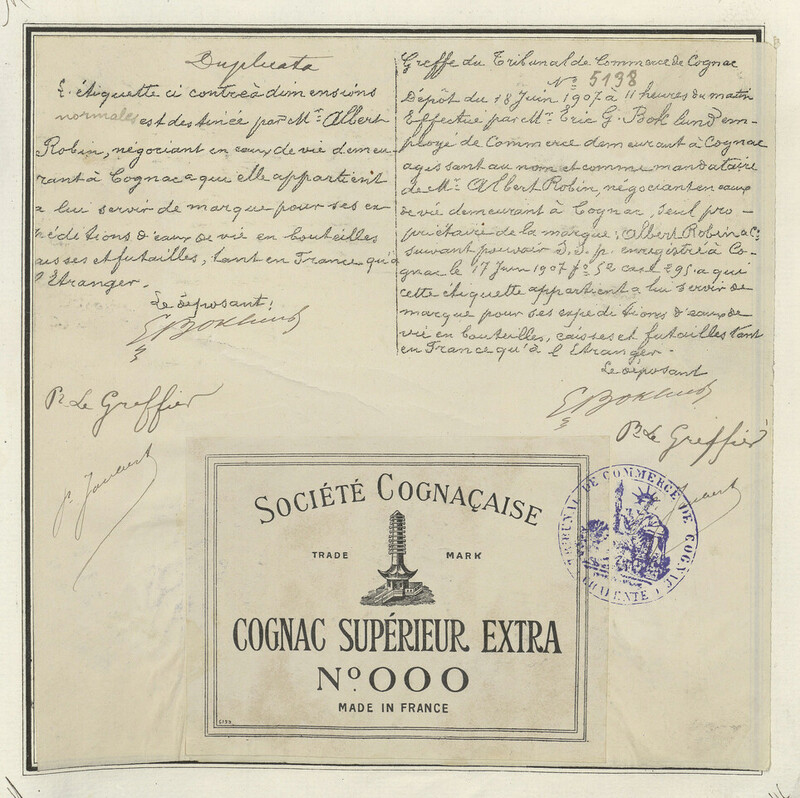 Duplicata
L'étiquette ci contre à dimensions
normales est destinée par Mr. Albert
Robin, négociant en eaux de vie demeu
rant à Cognac a que elle appartient
a lui servir de marque pour ses ex
péditions d'eaux de vie en bouteilles
caisses et futailles, tant en France qu'à
l'Etranger.
Le déposant:
E Boklund
Pr. Le Greffier
Greffe du Tribunal de Commerce de Cognac
No 5138
Dépôt du 18 Juin 1907 à 11 heures du matin
Effectué par Mr. Eric G. Boklund em-
ployé de Commerce demeurant à Cognac
agissant au nom et comme mandataire
de Mr. Albert Robin, négociant en eaux
de vie demeurant à Cognac, seul pro-
priétaire de la marque: Albert Robin & Co
suivant pouvoir S.S.p. enregistré à Co-
gnac le 17 Juin 1907 fo 52 case 295 a que
cette étiquette appartient a lui servir de
marque pour ses expéditions d'eaux de
vie en bouteilles, caisses et futailles tant
en France qu'à l'Etranger.
Le déposant
E Boklund
Pr. Le Greffier
TRIBUNAL DE COMMERCE DE COGNAC
CHARENTE
SOCIÉTÉ COGNAÇAISE
TRADE MARK
COGNAC SUPÉRIEUR EXTRA
No. 000
MADE IN FRANCE